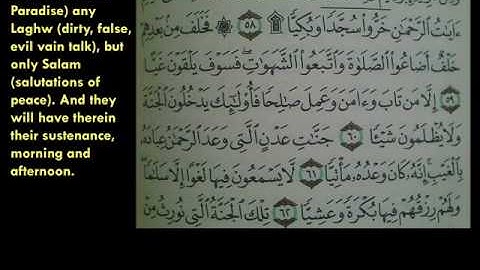 Paradise) any
Laghw (dirty, false,
evil vain talk), but
only Salam
(salutations of
peace). And they
will have therein
their sustenance,
morning and
afternoon.
ءَايَٰتُ ٱلرَّحْمَٰنِ خَرُّوا۟ سُجَّدًا وَبُكِيًّا ۩ ٥٨ فَخَلَفَ مِنۢ بَعْدِهِمْ
خَلْفٌ أَضَاعُوا۟ ٱلصَّلَوٰةَ وَٱتَّبَعُوا۟ ٱلشَّهَوَٰتِ ۖ فَسَوْفَ يَلْقَوْنَ غَيًّا
٥٩ إِلَّا مَن تَابَ وَءَامَنَ وَعَمِلَ صَٰلِحًا فَأُو۟لَٰٓئِكَ يَدْخُلُونَ ٱلْجَنَّةَ
وَلَا يُظْلَمُونَ شَيْـًٔا ٦٠ جَنَّٰتِ عَدْنٍ ٱلَّتِى وَعَدَ ٱلرَّحْمَٰنُ عِبَادَهُۥ
بِٱلْغَيْبِ ۚ إِنَّهُۥ كَانَ وَعْدُهُۥ مَأْتِيًّا ٦١ لَّا يَسْمَعُونَ فِيهَا لَغْوًا إِلَّا سَلَٰمًا ۖ
وَلَهُمْ رِزْقُهُمْ فِيهَا بُكْرَةً وَعَشِيًّا ٦٢ تِلْكَ ٱلْجَنَّةُ ٱلَّتِى نُورِثُ مِنْ